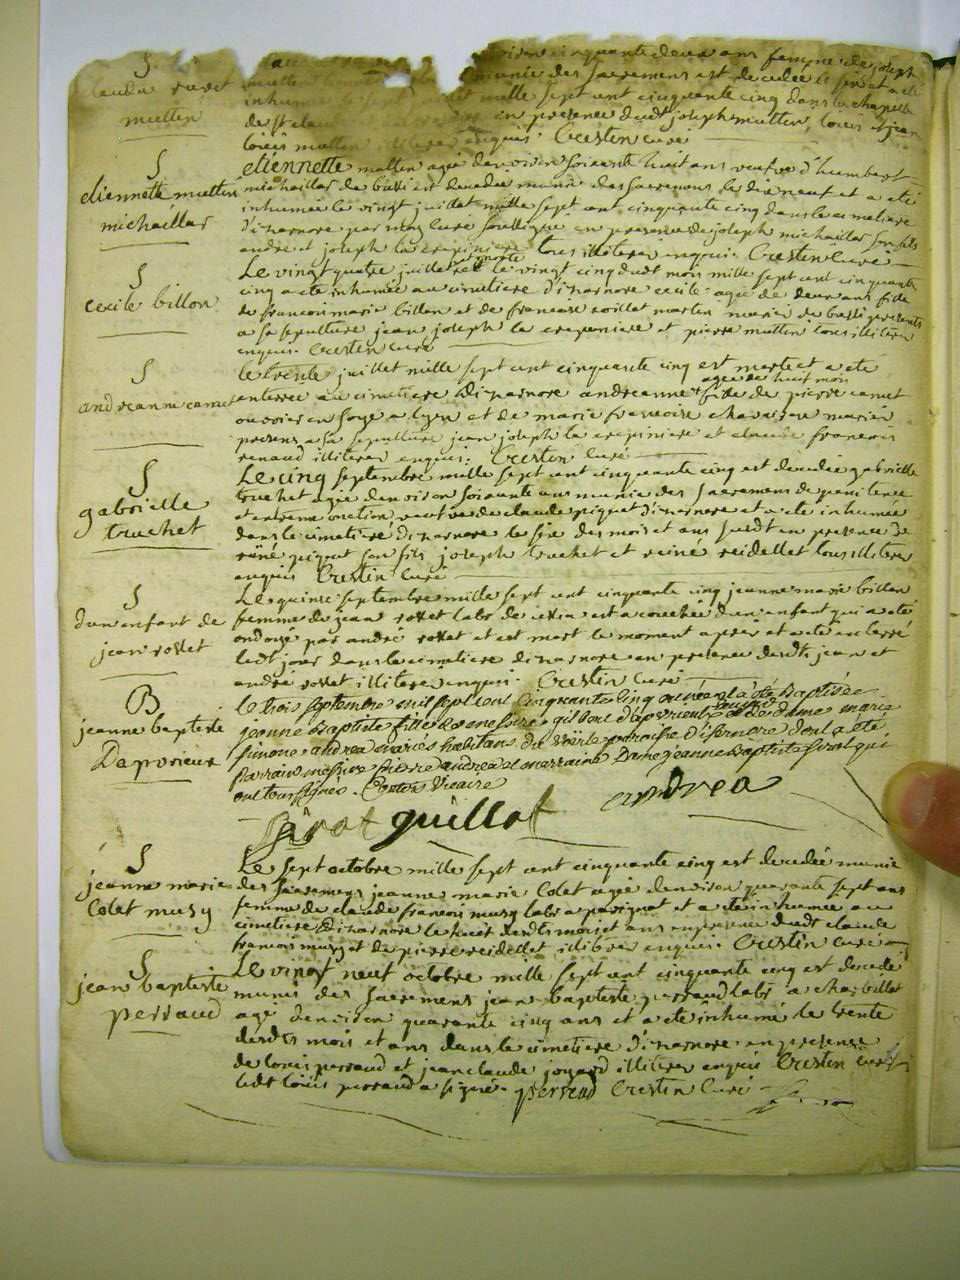 S
claudа
mutten
environ cinquante deux ans femme de joseph
mutten munie des sacremens est decedée le six et a été
inhumée le sept mille sept cent cinquante cinq dans la chapelle
de st claude en presence dudt joseph mutten, louis et jean
louis mutten enquis. Crestin curé
S
etiennette mutten
michaillar
etiennette mutten agée denviron soixante huit ans veufve d'humbert
michaillar de bussi est decedée munie des sacremens le dix neuf et a été
inhumée le vingt juillet mille sept cent cinquante cinq dans le cimetiere
d'izarnore par moy curé soussigné en presence de joseph michaillar son fils
andré et joseph la crepiniere tous illiteres enquis. Crestin curé
S
cecile billon
Le vingt quatre juillet est morte et le vingt cinq dudt mois mille sept cent cinquante
cinq a été inhumée au cimetiere d'izarnore cecile agée de deux ans fille
de francois marie billon et de francoise roillet martin mariés de bussi presents
a sa sepulture jean joseph la crepiniere et pierre mutten tous illiteres
enquis. Crestin curé
S
andreanne camet
le trente juillet mille sept cent cinquante cinq est morte et a été
enterrée au cimetiere d'izarnore andreanne agée de huit mois fille de pierre camet
ouvrier en soye a lyon et de marie francoise chavassine mariés
presens a sa sepulture jean joseph la crepiniere et claude francois
renaud illiteres enquis. Crestin curé
S
gabrielle
truchet
Le cinq septembre mille sept cent cinquante cinq est decedée gabrielle
truchet agée denviron soixante ans munie des sacremens de penitence
et extreme onction veufve de claude piquet d'izarnore et a été inhumée
dans le cimetiere d'izarnore le six des mois et ans susdt en presence de
rené piquet son fils joseph truchet et reine reidellet tous illiteres
enquis Crestin curé
S
d'un enfant de
jean rosset
Le quinze septembre mille sept cent cinquante cinq jeanne marie billon
femme de jean rosset labr de est accouchée d'un enfant qui a été
ondoyé par andré rosset et est mort le moment apres et a été enterré
ledt jour dans le cimetiere d'izarnore en presence desdts jean et
andré rosset illiteres enquis. Crestin curé
B
jeanne baptiste
Daprvieux
le trois septembre mil sept cent cinquante cinq est née et a été baptisée
jeanne Baptiste fille de messire guillot d'aprvieux et de dame marie
simone andrea mariés habitans de voërle paroisse d'isernore dont a été
parrain messire pierre andrea et marraine Dame jeanne Baptiste sirat qui
ont tous signés. Vicaire
Sirat guillot andrea
S
jeanne marie
Colet musy
Le sept octobre mille sept cent cinquante cinq est decedée munie
des sacremens jeanne marie Colet agée denviron quarante sept ans
femme de claude francois musy labr a perignat et a été inhumée au
cimetiere d'izarnore le huit desdts mois et ans en presence dudt claude
francois musy et de pierre reidellet illiteres enquis. Crestin curé
S
jean baptiste
perraud
Le vingt neuf octobre mille sept cent cinquante cinq est decedé
munis des sacremens jean baptiste perraud labr a charbillat
agé denviron quarante cinq ans et a été inhumé le trente
desdts mois et ans dans le cimetiere d'izarnore en presence
de louis perraud et jean claude joyard illiteres enquis Crestin curé
ledt louis perraud a signé. perraud Crestin Curé